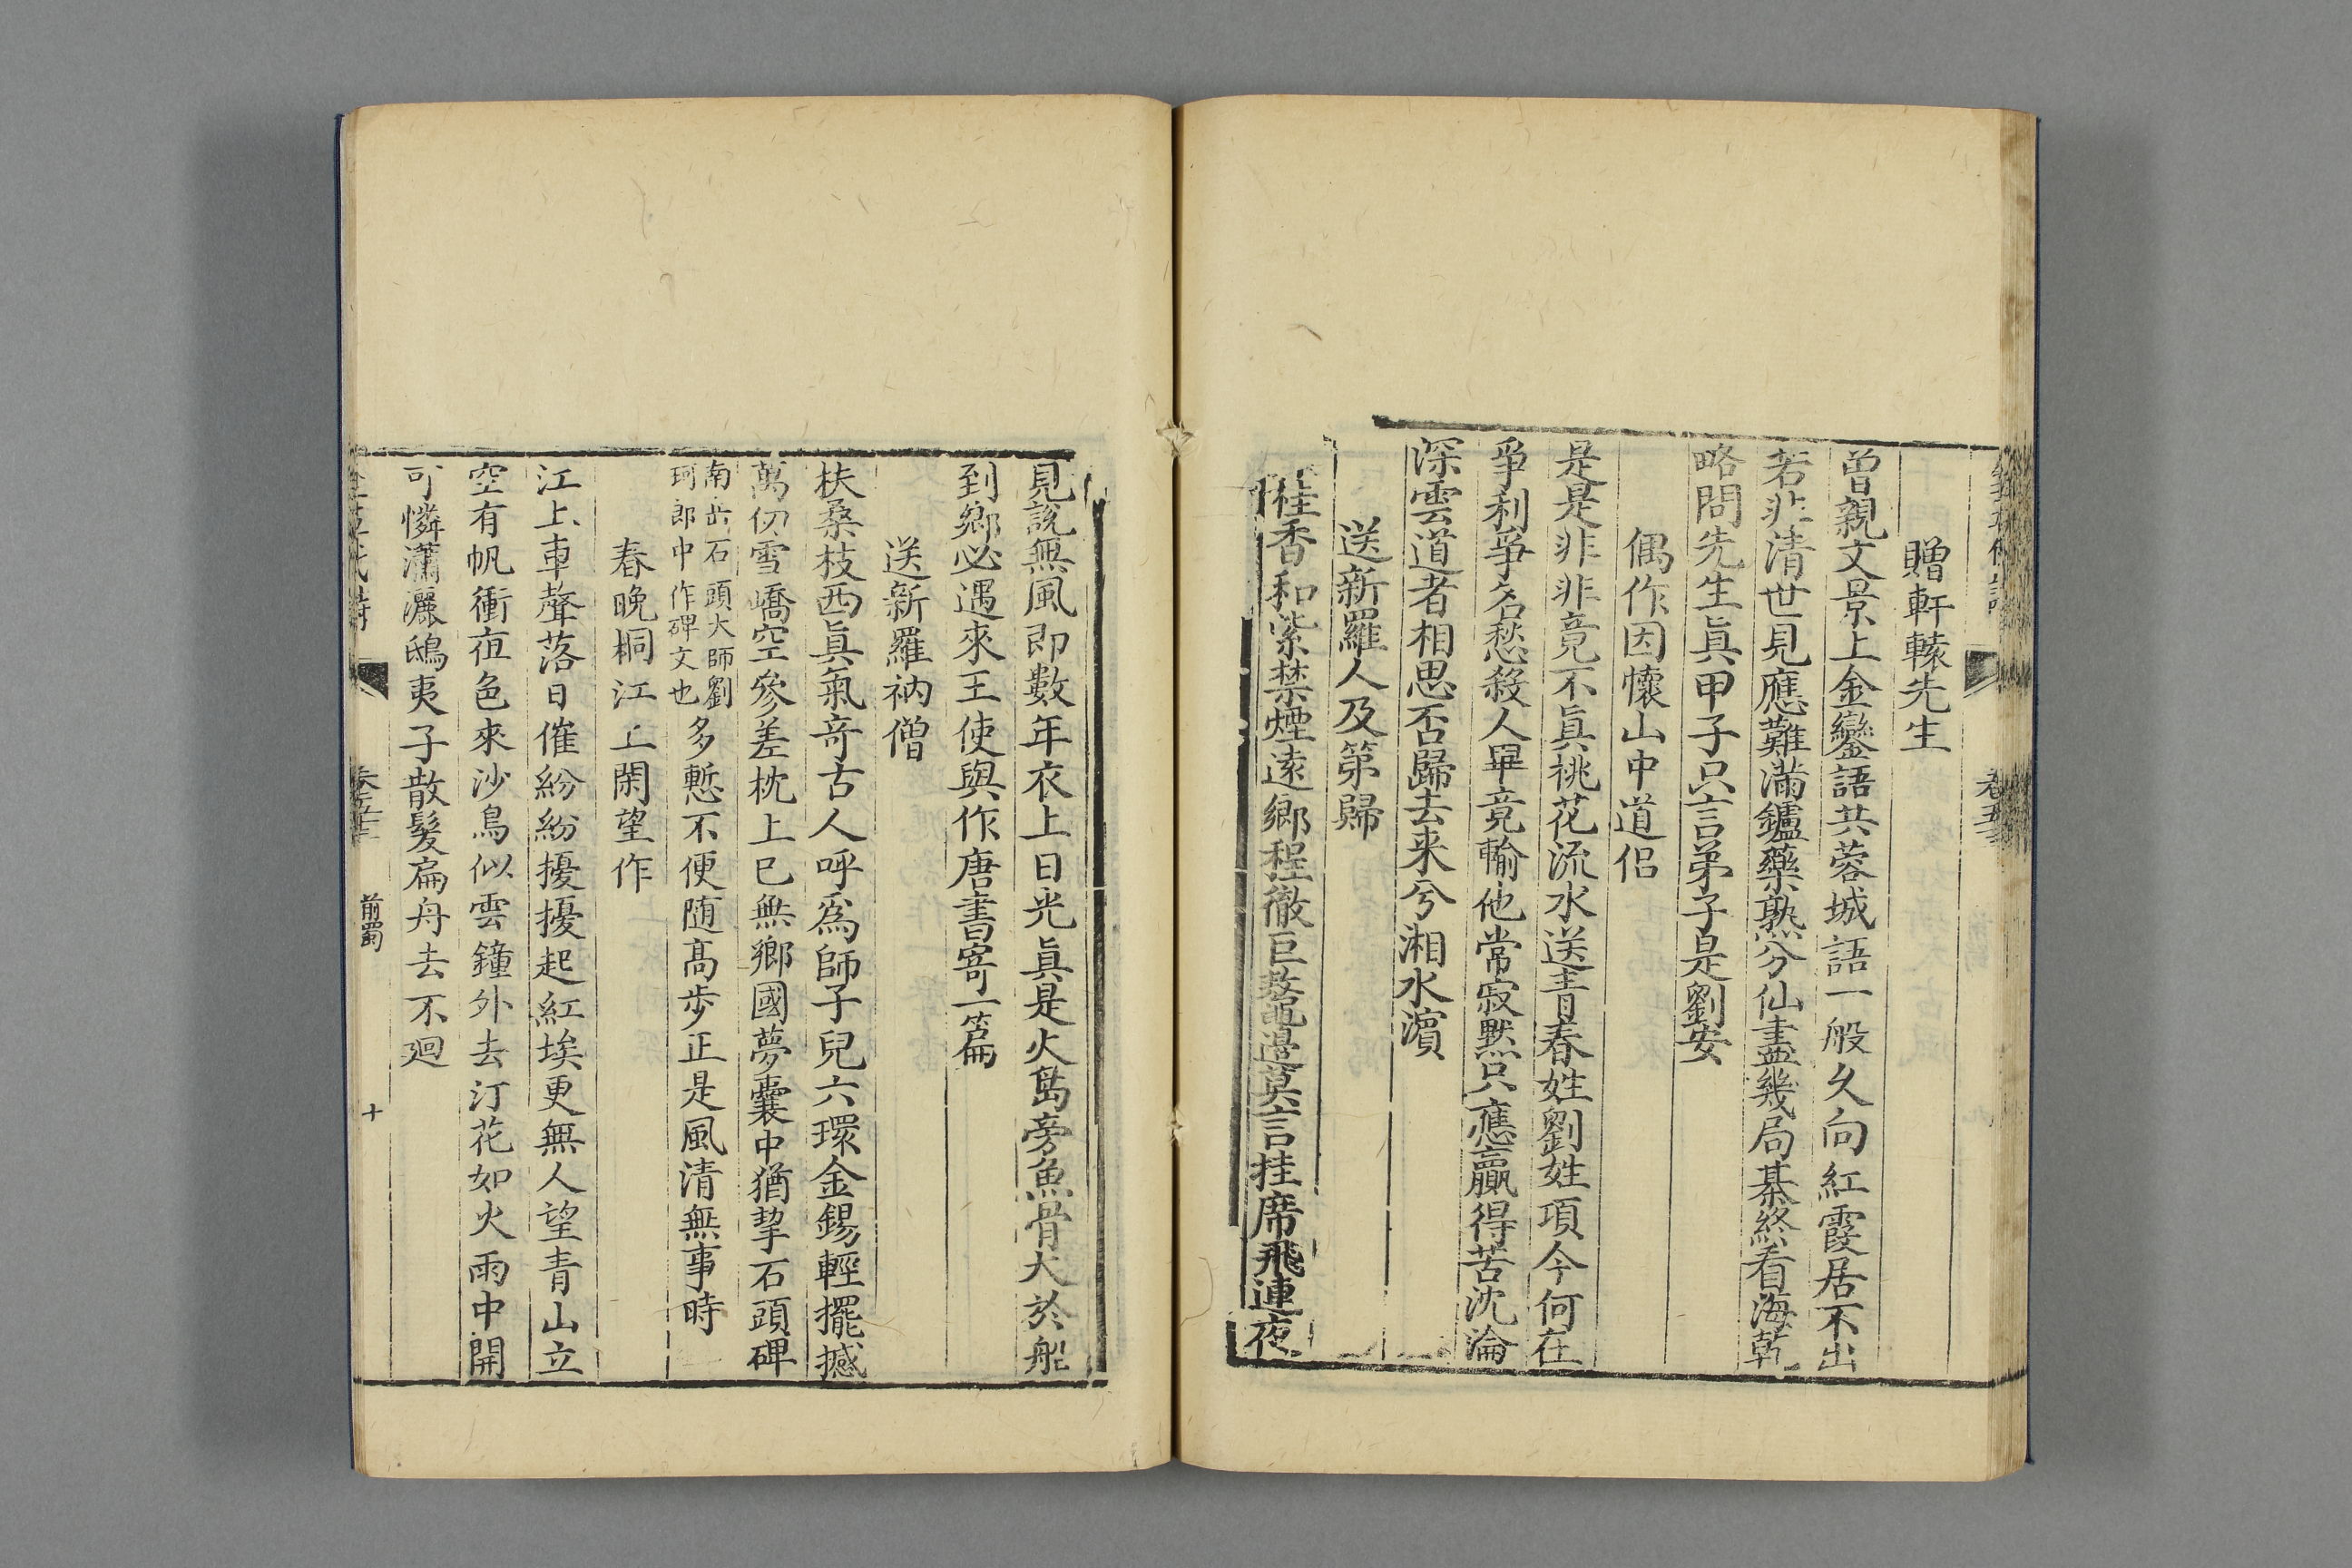 贈軒轅先生
曽親文景上金鑾語共蓉城語一般久向紅霞居不出
若非清世見應難滿鑪藥熟分仙盡幾局棊終看海乾
略問先生眞甲子只言弟子是劉安
偶作因懷山中道侶
是是非非竟不眞桃花流水送青春姓劉姓項今何在
爭利爭名愁殺人畢竟輸他常寂默只應贏得苦沈淪
深雲道者相思否歸去来兮湘水濵
送新羅人及第歸
桂香和紫禁煙遠鄉程徹巨鼇邉莫言挂席飛連夜
見說無風即數年衣上日光眞是火島旁魚骨大於船
到鄉必遇來王使與作唐書寄一篇
送新羅衲僧
扶桑枝西眞氣竒古人呼爲師子兒六環金錫輕擺撼
萬仞雪嶠空參差枕上已無鄉國夢囊中猶挈石頭碑
南岳石頭大師劉
珂郎中作碑文也
多慙不便随高步正是風清無事時
春晚桐江上閑望作
江上車聲落日催紛紛擾擾起紅埃更無人望青山立
空有帆衝夜色來沙鳥似雲鐘外去汀花如火雨中開
可憐瀟灑鴟夷子散髮扁舟去不迴
前蜀
十